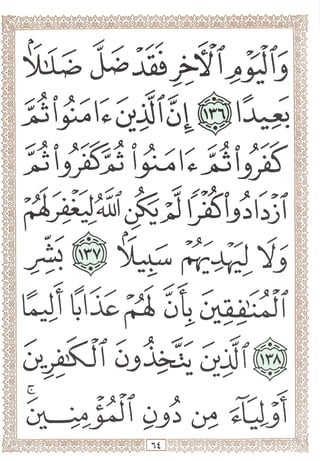 وَٱلْيَوْمِ ٱلْأَخِرِ فَقَدْ ضَلَّ ضَلَٰلًا
بَعِيدًا ١٣٦ إِنَّ ٱلَّذِينَ ءَامَنُوا۟ ثُمَّ
كَفَرُوا۟ ثُمَّ ءَامَنُوا۟ ثُمَّ كَفَرُوا۟ ثُمَّ
ٱزْدَادُوا۟ كُفْرًا لَّمْ يَكُنِ ٱللَّهُ لِيَغْفِرَ لَهُمْ
وَلَا لِيَهْدِيَهُمْ سَبِيلًۢا ١٣٧ بَشِّرِ
ٱلْمُنَٰفِقِينَ بِأَنَّ لَهُمْ عَذَابًا أَلِيمًا
١٣٨ ٱلَّذِينَ يَتَّخِذُونَ ٱلْكَٰفِرِينَ
أَوْلِيَآءَ مِن دُونِ ٱلْمُؤْمِنِينَ ۚ
٦٤